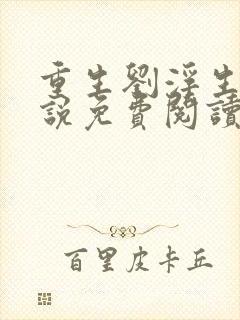 重生劉淫生
說免費閱讀
百里皮卡丘